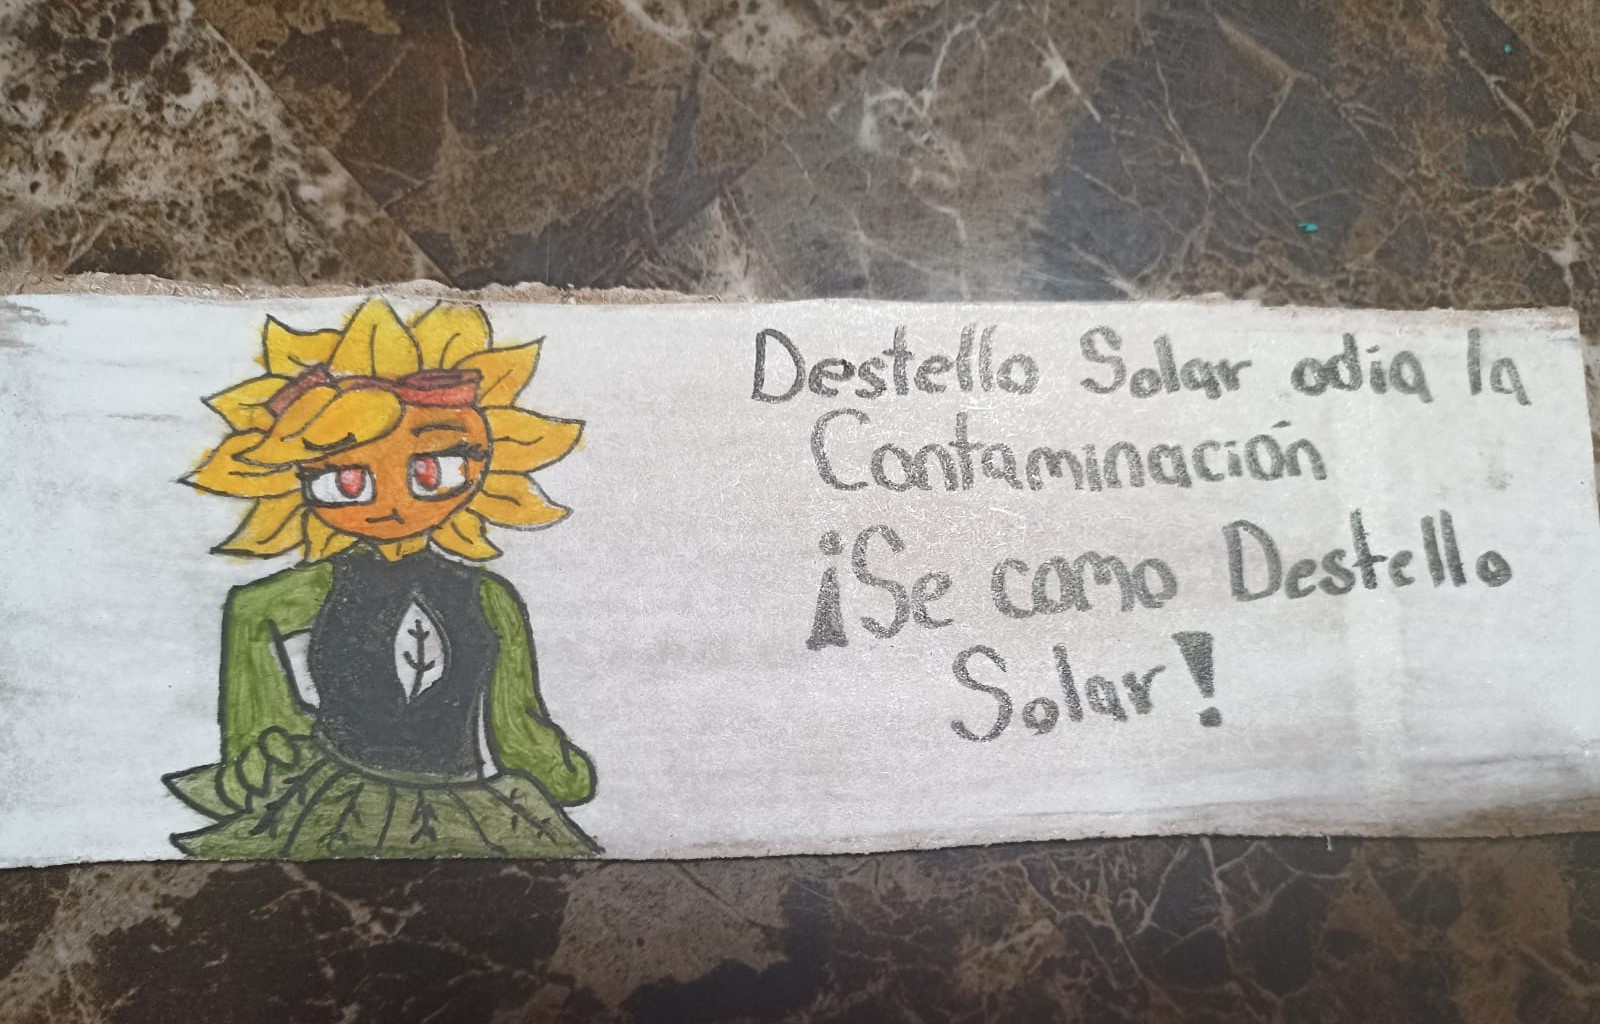 Destello Solar odia la
Contaminación
¡Se como Destello
Solar!